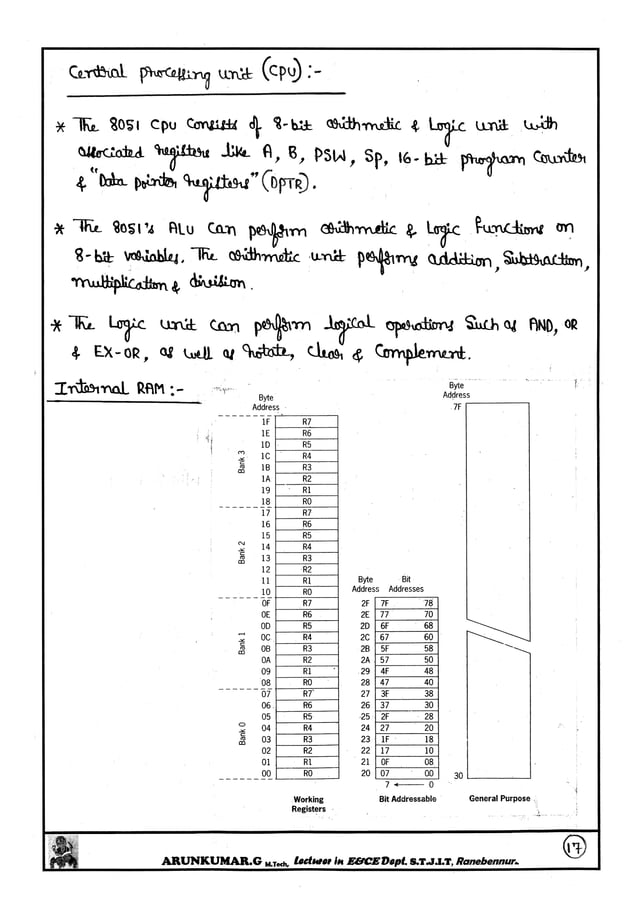 Central processing unit (CPU) :-
* The 8051 CPU Consists of 8-bit arithmetic & Logic unit with
associated registers like A, B, PSW, SP, 16-bit program Counter
& "Data pointer registers" (DPTR).
* The 8051's ALU Can perform arithmetic & Logic Functions on
8-bit variables. The arithmetic unit performs addition, Subtraction,
multiplication & division.
* The Logic unit can perform logical operations Such as AND, OR
& EX-OR, as well as rotate, Clear & Complement.
Internal RAM :-
Byte
Address
Bank 3
1F R7
1E R6
1D R5
1C R4
1B R3
1A R2
19 R1
18 R0
Bank 2
17 R7
16 R6
15 R5
14 R4
13 R3
12 R2
11 R1
10 R0
Bank 1
0F R7
0E R6
0D R5
0C R4
0B R3
0A R2
09 R1
08 R0
Bank 0
07 R7
06 R6
05 R5
04 R4
03 R3
02 R2
01 R1
00 R0
Working
Registers
Byte Bit
Address Addresses
2F 7F 78
2E 77 70
2D 6F 68
2C 67 60
2B 5F 58
2A 57 50
29 4F 48
28 47 40
27 3F 38
26 37 30
25 2F 28
24 27 20
23 1F 18
22 17 10
21 0F 08
20 07 00
7 ← 0
Bit Addressable
Byte
Address
7F
30
General Purpose
ARUNKUMAR.G M.Tech, Lecturer in E&CE Dept. S.T.J.I.T, Ranebennur.
17